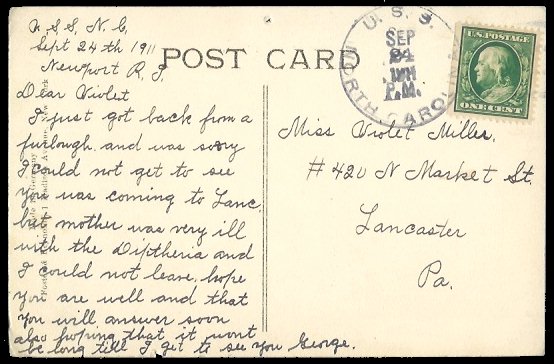 U.S.S. N.C.
Sept 24th 1911
Newport R.I.
Dear Violet
I just got back from a
furlough and was sorry
I could not get to see
you was coming to Lanc.
but mother was very ill
with the Diptheria and
I could not leave, hope
you are well and that
you will answer soon
also hoping that it wont
be long till I get to see you George.
POST CARD
U. S. S.
SEP
24
1911
P.M.
NORTH CAROLINA
U.S. POSTAGE
ONE CENT
Miss Violet Miller,
# 420 N Market St.
Lancaster
Pa.